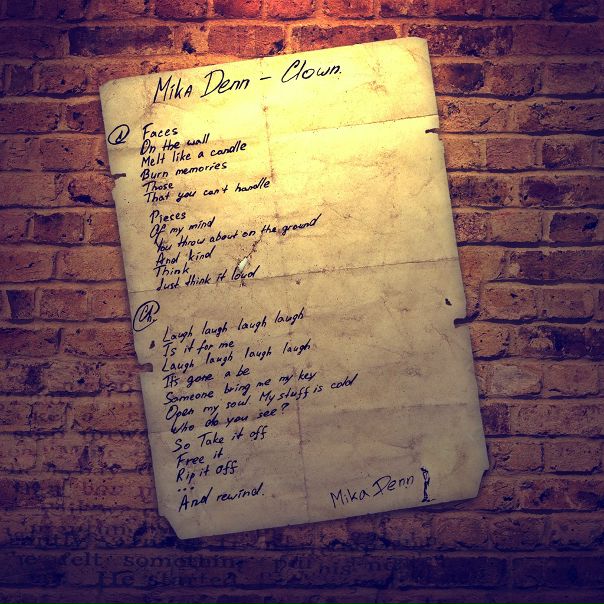 Mika Denn - Clown.
1 Faces
On the wall
Melt like a candle
Burn memories
Those
That you can't handle
Pieses
Of my mind
You throw about on the ground
And kind
Think
Just think it loud
Ch.
Laugh laugh laugh laugh
Is it for me
Laugh laugh laugh laugh
It's gone a be
Someone bring me my key
Open my soul. My stuff is cold
Who do you see?
So Take it off
Free it
Rip it off
...
And rewind.
Mika Denn
felt something
He started